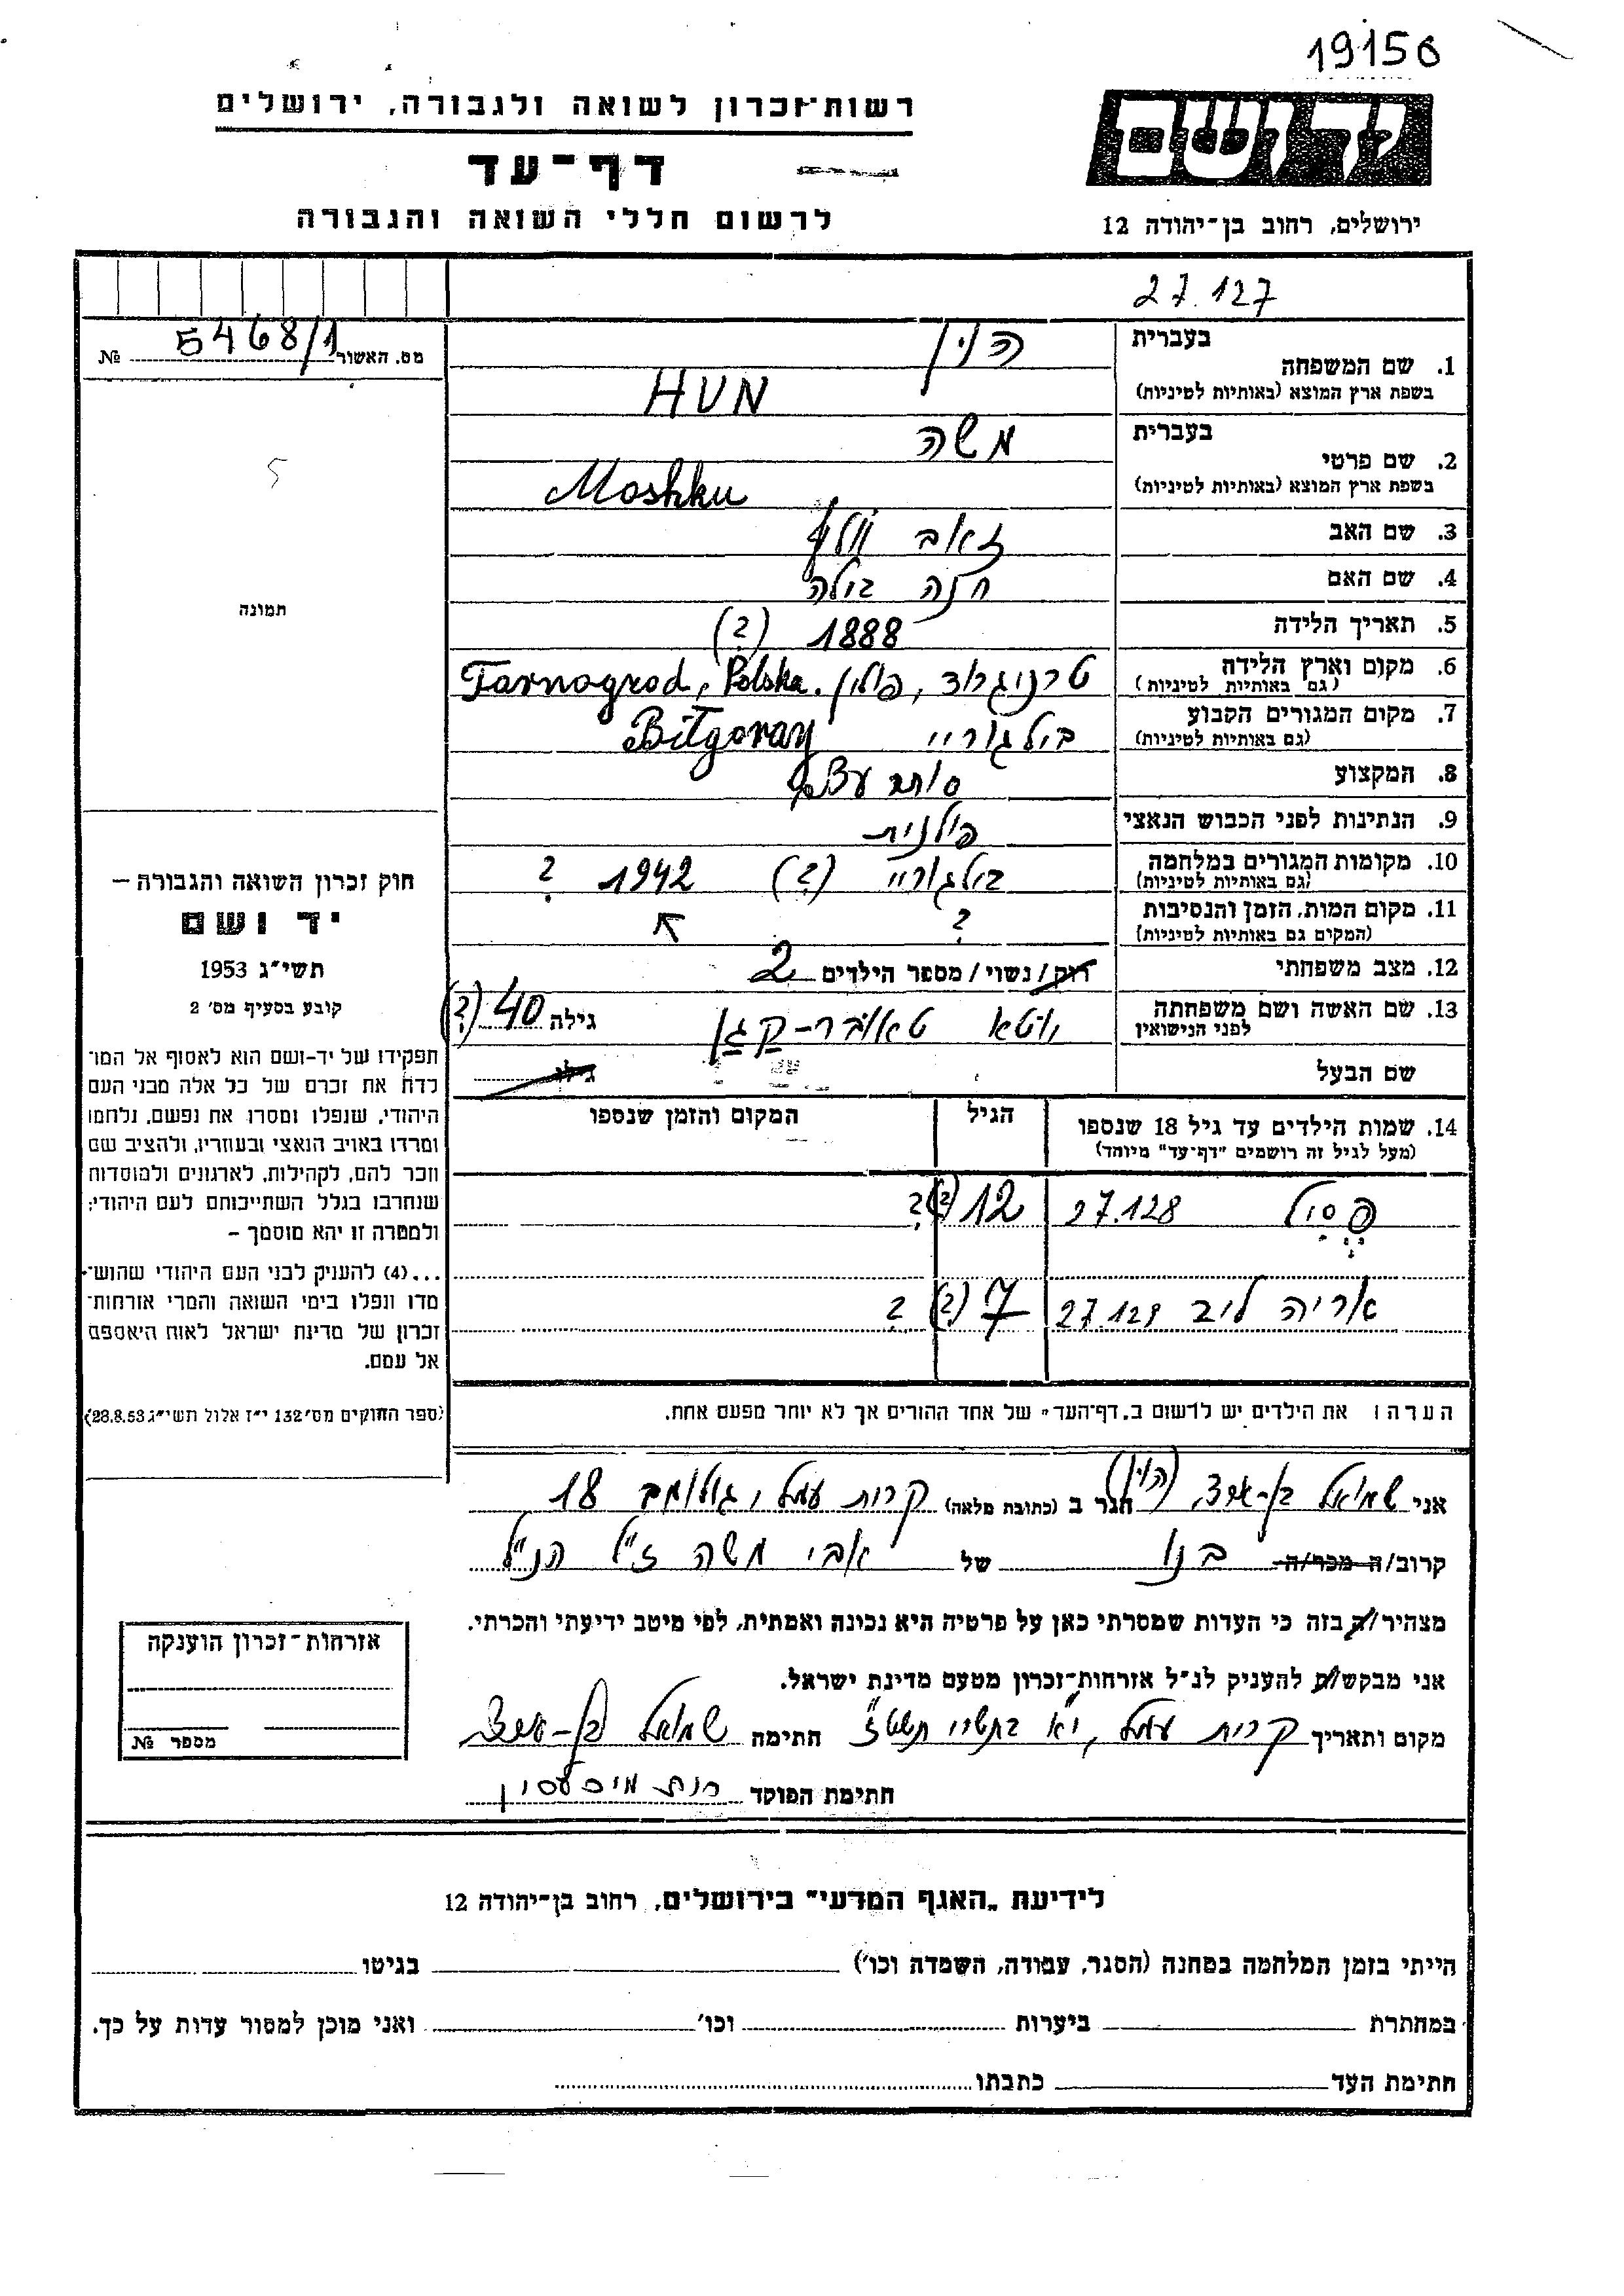 19156
רשות־זכרון לשואה ולגבורה, ירושלים
דף־עד
לרשום חללי השואה והגבורה
יד ושם
ירושלים, רחוב בן־יהודה 12
27.127
מס. האשור 5468/1 №
1. שם המשפחה בעברית הון
בשפת ארץ המוצא (באותיות לטיניות) HUN
2. שם פרטי בעברית משה
בשפת ארץ המוצא (באותיות לטיניות) Moshku
3. שם האב זאב וולף
4. שם האם חנה בולה
5. תאריך הלידה 1888 (?)
6. מקום וארץ הלידה (גם באותיות לטיניות) טרניגרוד, פולין. Tarnogrod, Polska
7. מקום המגורים הקבוע (גם באותיות לטיניות) בילגוריי Biłgoray
8. המקצוע סוחר
9. הנתינות לפני הכבוש הנאצי פולנית
10. מקומות המגורים במלחמה (גם באותיות לטיניות) בילגוריי (?) 1942 ?
11. מקום המות, הזמן והנסיבות (המקום גם באותיות לטיניות) ?
12. מצב משפחתי רוק/נשוי/מספר הילדים 2
13. שם האשה ושם משפחתה לפני הנישואין טאובר-קגן גילה 40 (?)
שם הבעל גילו
14. שמות הילדים עד גיל 18 שנספו הגיל המקום והזמן שנספו
(מעל לגיל זה רושמים "דף־עד" מיוחד)
פסיל 27.128 12 (?) ?
אריה ליב 27.129 7 (?) ?
הערה: את הילדים יש לרשום ב„דף־העד" של אחד ההורים אך לא יותר מפעם אחת.
תמונה
חוק זכרון השואה והגבורה –
יד ושם
תשי"ג 1953
קובע בסעיף מס' 2
תפקידו של יד-ושם הוא לאסוף אל המו־
לדת את זכרם של כל אלה מבני העם
היהודי, שנפלו ומסרו את נפשם, נלחמו
ומרדו באויב הנאצי ובעוזריו, ולהציב שם
וזכר להם, לקהילות, לארגונים ולמוסדות
שנחרבו בגלל השתייכותם לעם היהודי;
ולמטרה זו יהא מוסמך –
...(4) להעניק לבני העם היהודי שהוש־
מדו ונפלו בימי השואה והמרי אזרחות־
זכרון של מדינת ישראל לאות היאספם
אל עמם.
(ספר החוקים מס' 132 י"ז אלול תשי"ג 28.8.53)
אני שמואל בן-ארצי (הון) הגר ב (כתובת מלאה) קרית עמל, גולומב 18
קרוב/ה מכר/ה בנו של אבי משה ז"ל הנ"ל
מצהיר/ה בזה כי העדות שמסרתי כאן על פרטיה היא נכונה ואמתית, לפי מיטב ידיעתי והכרתי.
אני מבקש/ת להעניק לנ"ל אזרחות־זכרון מטעם מדינת ישראל.
מקום ותאריך קרית עמל, י"א בתשרי תשט"ז חתימה שמואל בן-ארצי
חתימת הפוקד
אזרחות־זכרון הוענקה
מספר №
לידיעת „האגף המדעי" בירושלים, רחוב בן־יהודה 12
הייתי בזמן המלחמה במחנה (הסגר, עבודה, השמדה וכו') בגיטו
במחתרת ביערות וכו' ואני מוכן למסור עדות על כך.
חתימת העד כתבתו